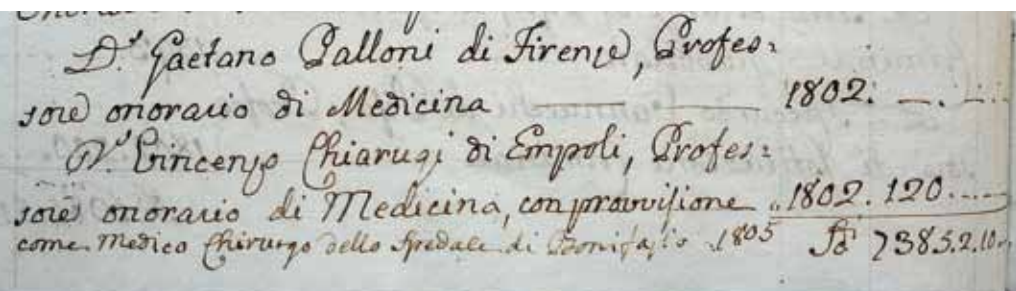 D.r Gaetano Palloni di Firenze, Profes:
sore onorario di Medicina 1802. _._._
D.r Vincenzo Chiarugi di Empoli, Profes:
sore onorario di Medicina, con provvisione 1802. 120.
come Medico Chirurgo dello Spedale di Bonifazio 1805 7385.2.10